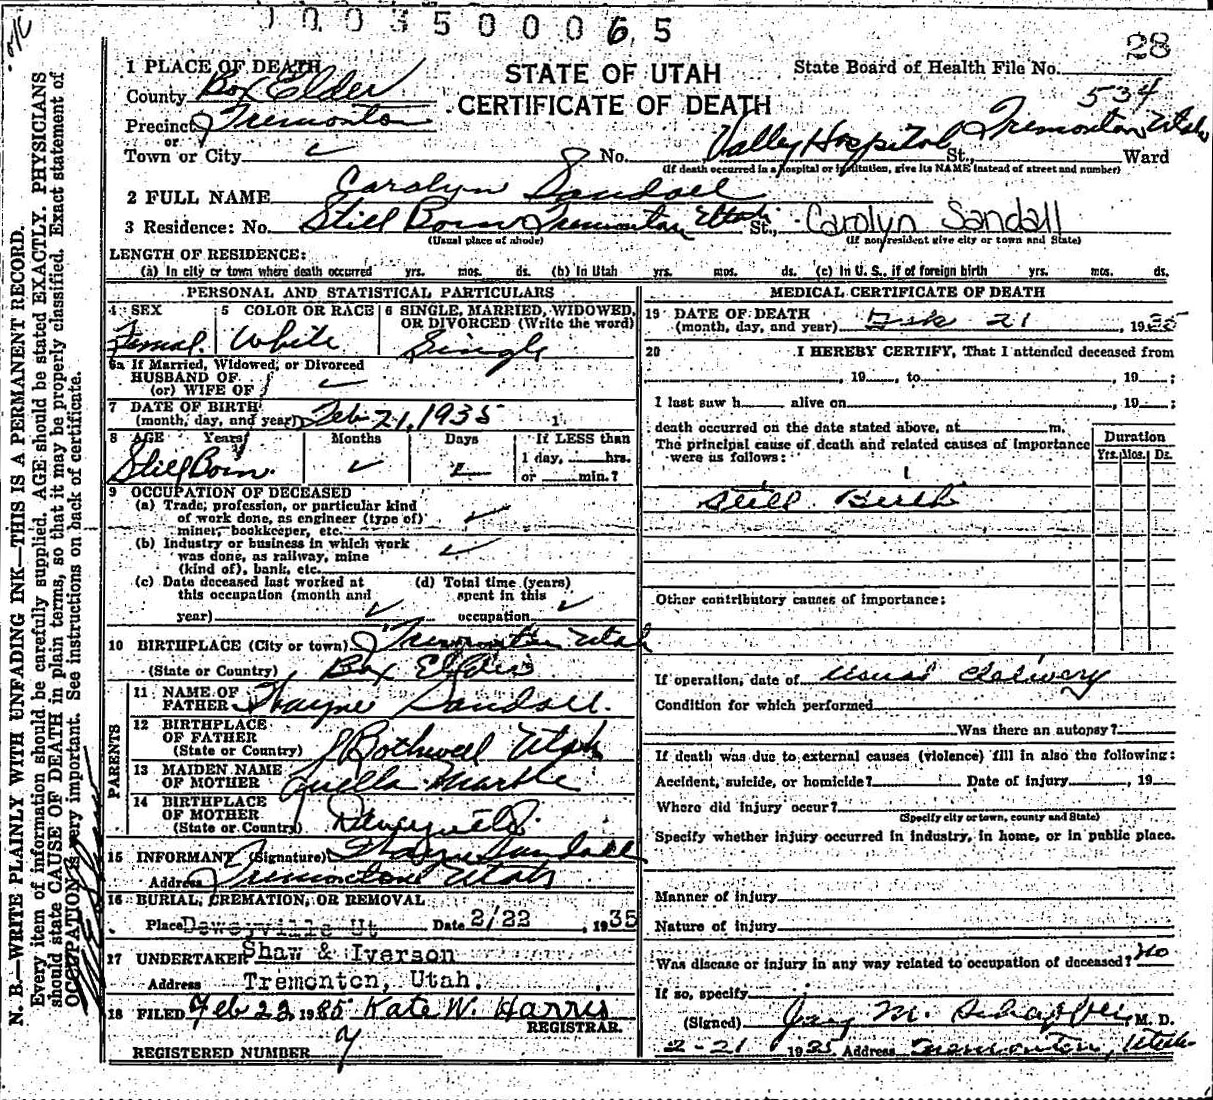 0 0 3 5 0 0 0 6 5
28
1 PLACE OF DEATH
STATE OF UTAH
State Board of Health File No.
County Box Elder
CERTIFICATE OF DEATH
534
Precinct Tremonton
or
Town or City ✓ No. Valley Hospital Tremonton Utah St., Ward
(If death occurred in a hospital or institution, give its NAME instead of street and number)
2 FULL NAME Carolyn Sandall
3 Residence: No. Still Born Tremonton Utah St., Carolyn Sandall
(Usual place of abode) (If nonresident give city or town and State)
LENGTH OF RESIDENCE:
(a) In city or town where death occurred yrs. mos. ds. (b) In Utah yrs. mos. ds. (c) In U. S., if of foreign birth yrs. mos. ds.
PERSONAL AND STATISTICAL PARTICULARS
4 SEX 5 COLOR OR RACE 6 SINGLE, MARRIED, WIDOWED,
OR DIVORCED (Write the word)
Femal. White Single
6a If Married, Widowed, or Divorced
HUSBAND OF
(or) WIFE OF ✓
7 DATE OF BIRTH
(month, day, and year) Feb 21, 1935 1
8 AGE Years Months Days If LESS than
1 day, hrs.
Still Born ✓ or min.?
9 OCCUPATION OF DECEASED
(a) Trade, profession, or particular kind
of work done, as engineer (type of)
miner, bookkeeper, etc. ✓
(b) Industry or business in which work
was done, as railway, mine
(kind of), bank, etc. ✓
(c) Date deceased last worked at (d) Total time (years)
this occupation (month and spent in this
year) ✓ occupation ✓
10 BIRTHPLACE (City or town) Tremonton Utah
(State or Country) Box Elder
PARENTS
11 NAME OF
FATHER Thayne Sandall.
12 BIRTHPLACE
OF FATHER
(State or Country) Bothwell Utah
13 MAIDEN NAME
OF MOTHER Quella Marble
14 BIRTHPLACE
OF MOTHER
(State or Country)
15 INFORMANT (Signature) Thayne Sandall
Address Tremonton Utah
16 BURIAL, CREMATION, OR REMOVAL
Place Deweyville Ut Date 2/22, 1935
17 UNDERTAKER Shaw & Iverson
Address Tremonton, Utah.
18 FILED Feb 23, 1935 Kate W. Harris
REGISTRAR.
REGISTERED NUMBER 7
MEDICAL CERTIFICATE OF DEATH
19 DATE OF DEATH
(month, day, and year) Feb 21, 1935
20 I HEREBY CERTIFY, That I attended deceased from
, 19 , to , 19 ;
I last saw h alive on , 19 ;
death occurred on the date stated above, at m.
The principal cause of death and related causes of importance
were as follows:
Duration
Yrs. Mos. Ds.
Still Birth
Other contributory causes of importance:
If operation, date of usual delivery
Condition for which performed
Was there an autopsy?
If death was due to external causes (violence) fill in also the following:
Accident, suicide, or homicide? Date of injury , 19
Where did injury occur?
(Specify city or town, county and State)
Specify whether injury occurred in industry, in home, or in public place.
Manner of injury
Nature of injury
Was disease or injury in any way related to occupation of deceased? no
If so, specify
(Signed) M. , M. D.
2-21 1935 Address Tremonton, Utah
N. B.—WRITE PLAINLY WITH UNFADING INK—THIS IS A PERMANENT RECORD.
Every item of information should be carefully supplied. AGE should be stated EXACTLY. PHYSICIANS
should state CAUSE OF DEATH in plain terms, so that it may be properly classified. Exact statement of
OCCUPATION is very important. See instructions on back of certificate.